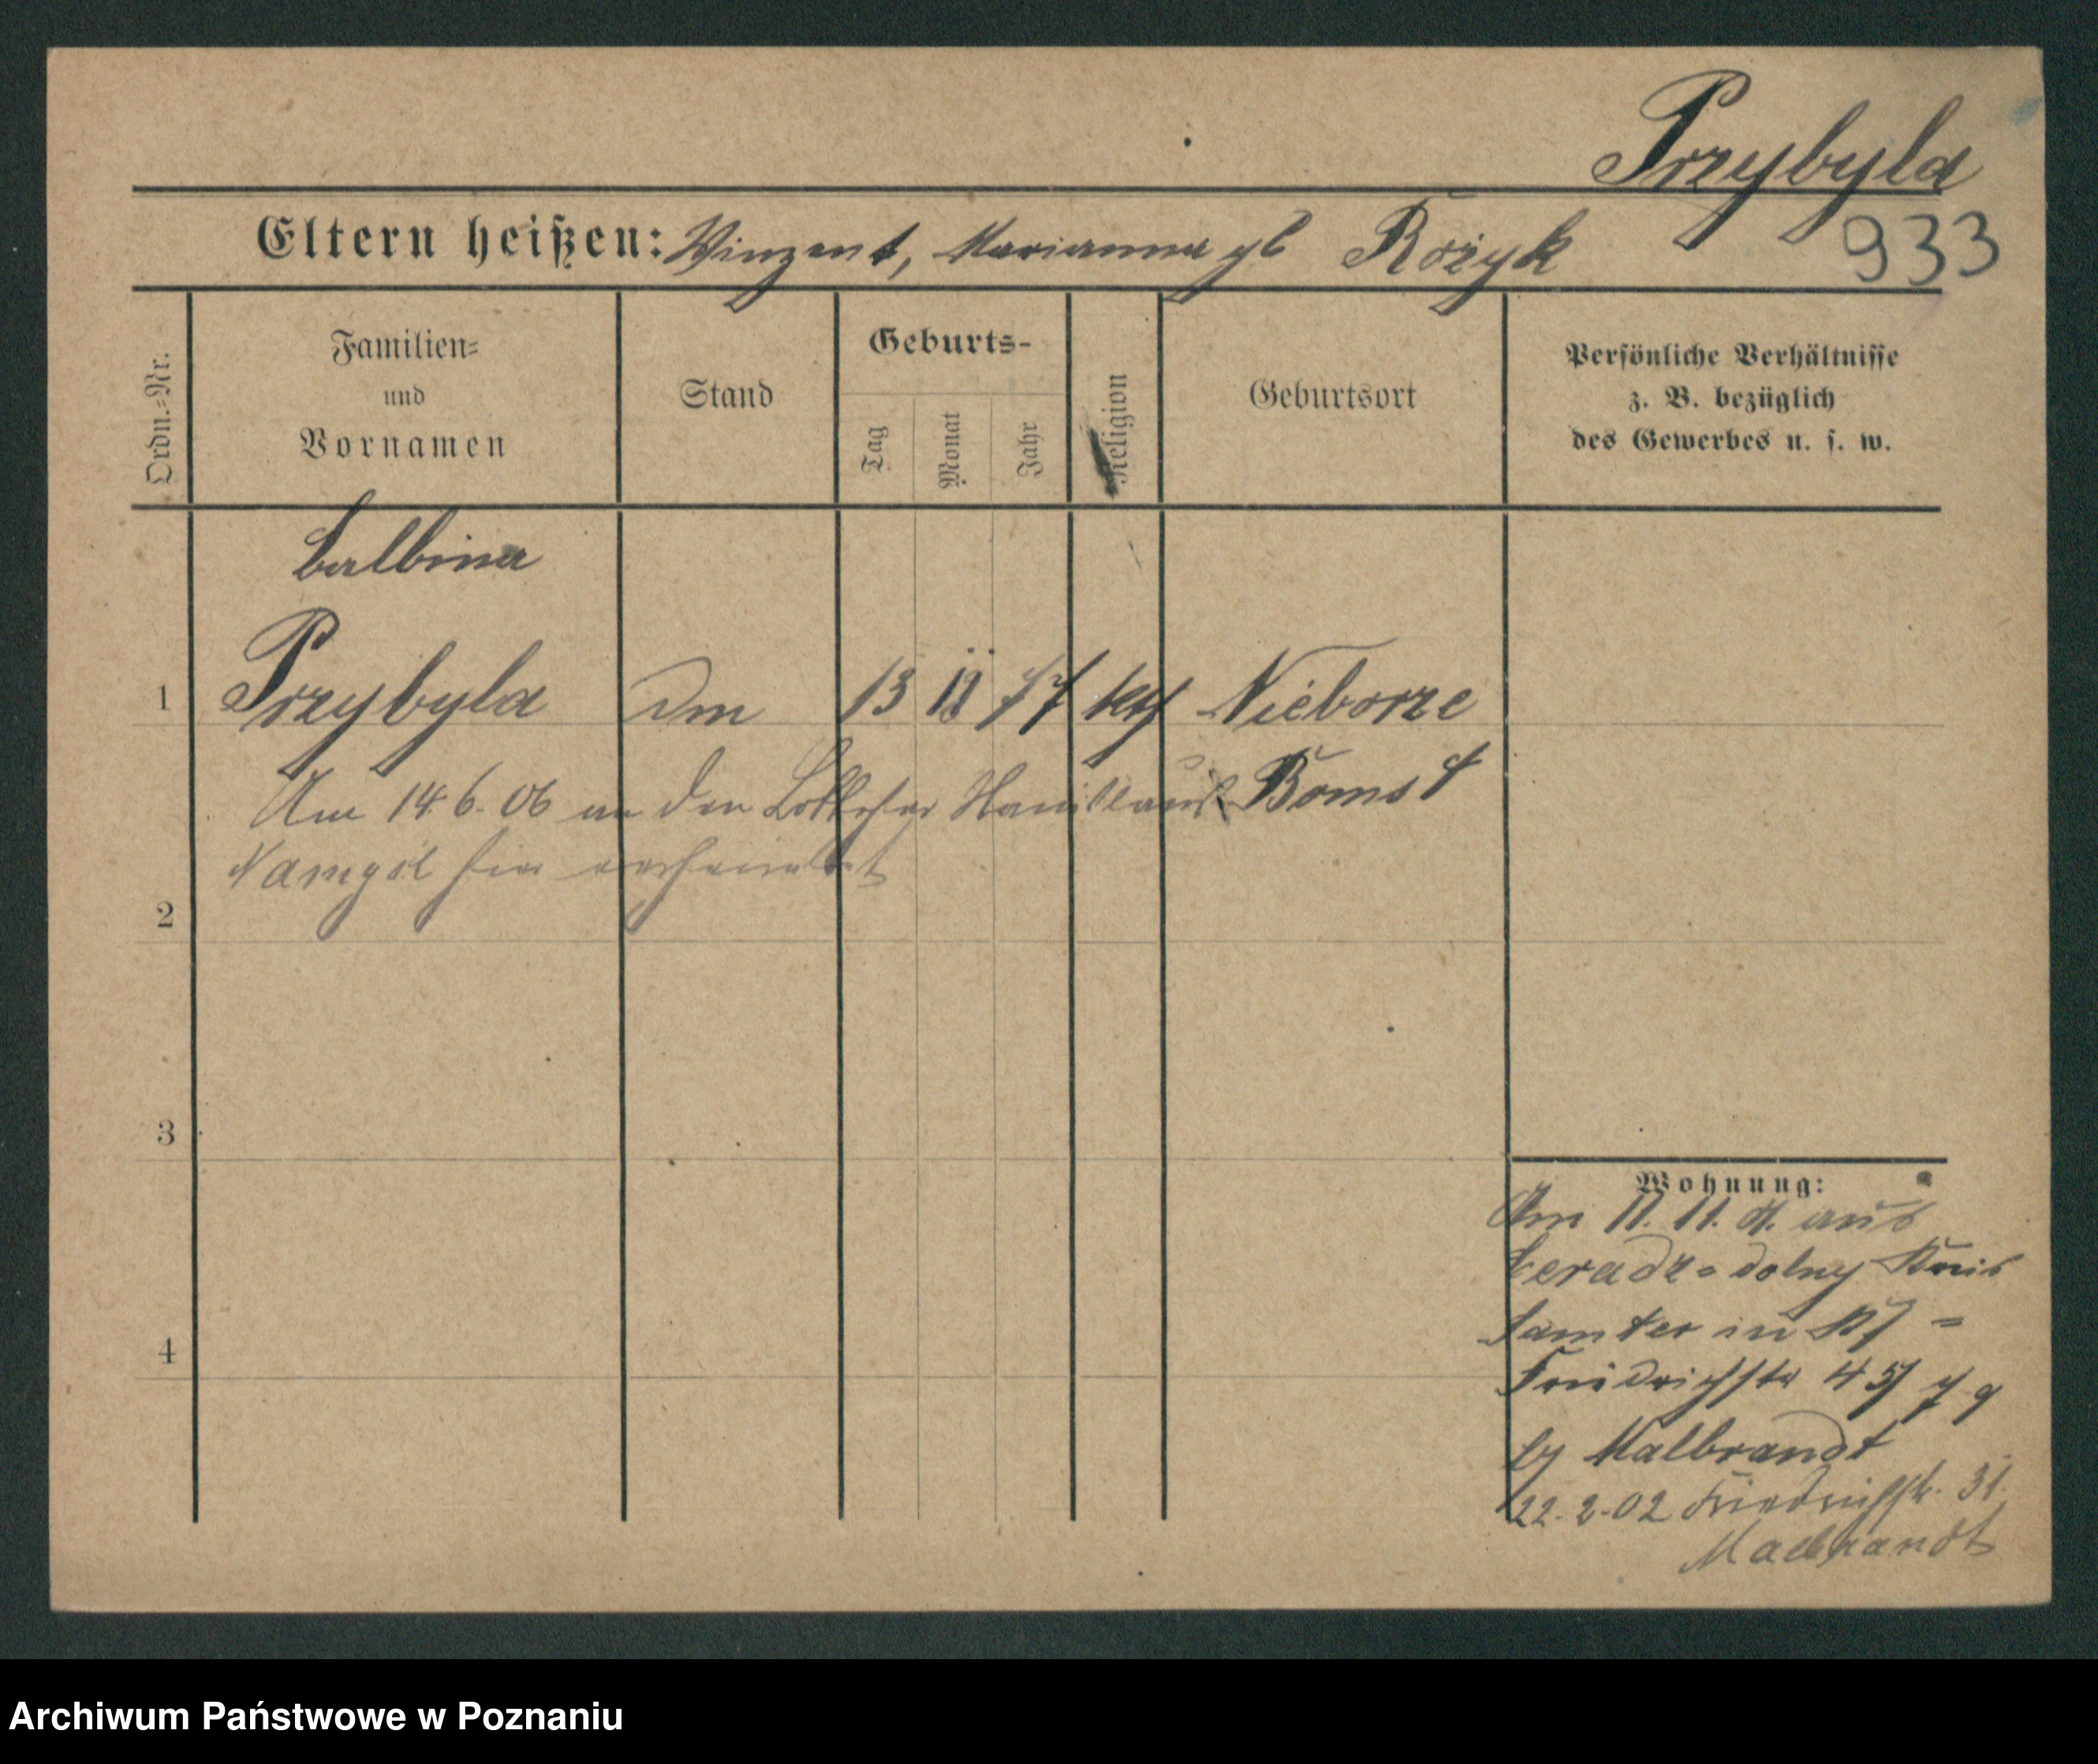 Przybyla
933
Eltern heißen: Winzent, Marianna gb Rożyk
Ordn.=Nr.
Familien=
und
Vornamen
Stand
Geburts-
Tag
Monat
Jahr
Religion
Geburtsort
Persönliche Verhältnisse
z. B. bezüglich
des Gewerbes u. s. w.
Balbina
1 Przybyla 13 77 Nieborze
Am 14.6.06 an den Stanislaus Bomst
hier verheiratet
2
3
4
Wohnung:
Am 11. 11. aus
Ceradz=dolny Kreis
Samter in
Friedrichstr 45
Malbrandt
22.2.02 Friedrichstr. 31.
Malbrandt
Archiwum Państwowe w Poznaniu